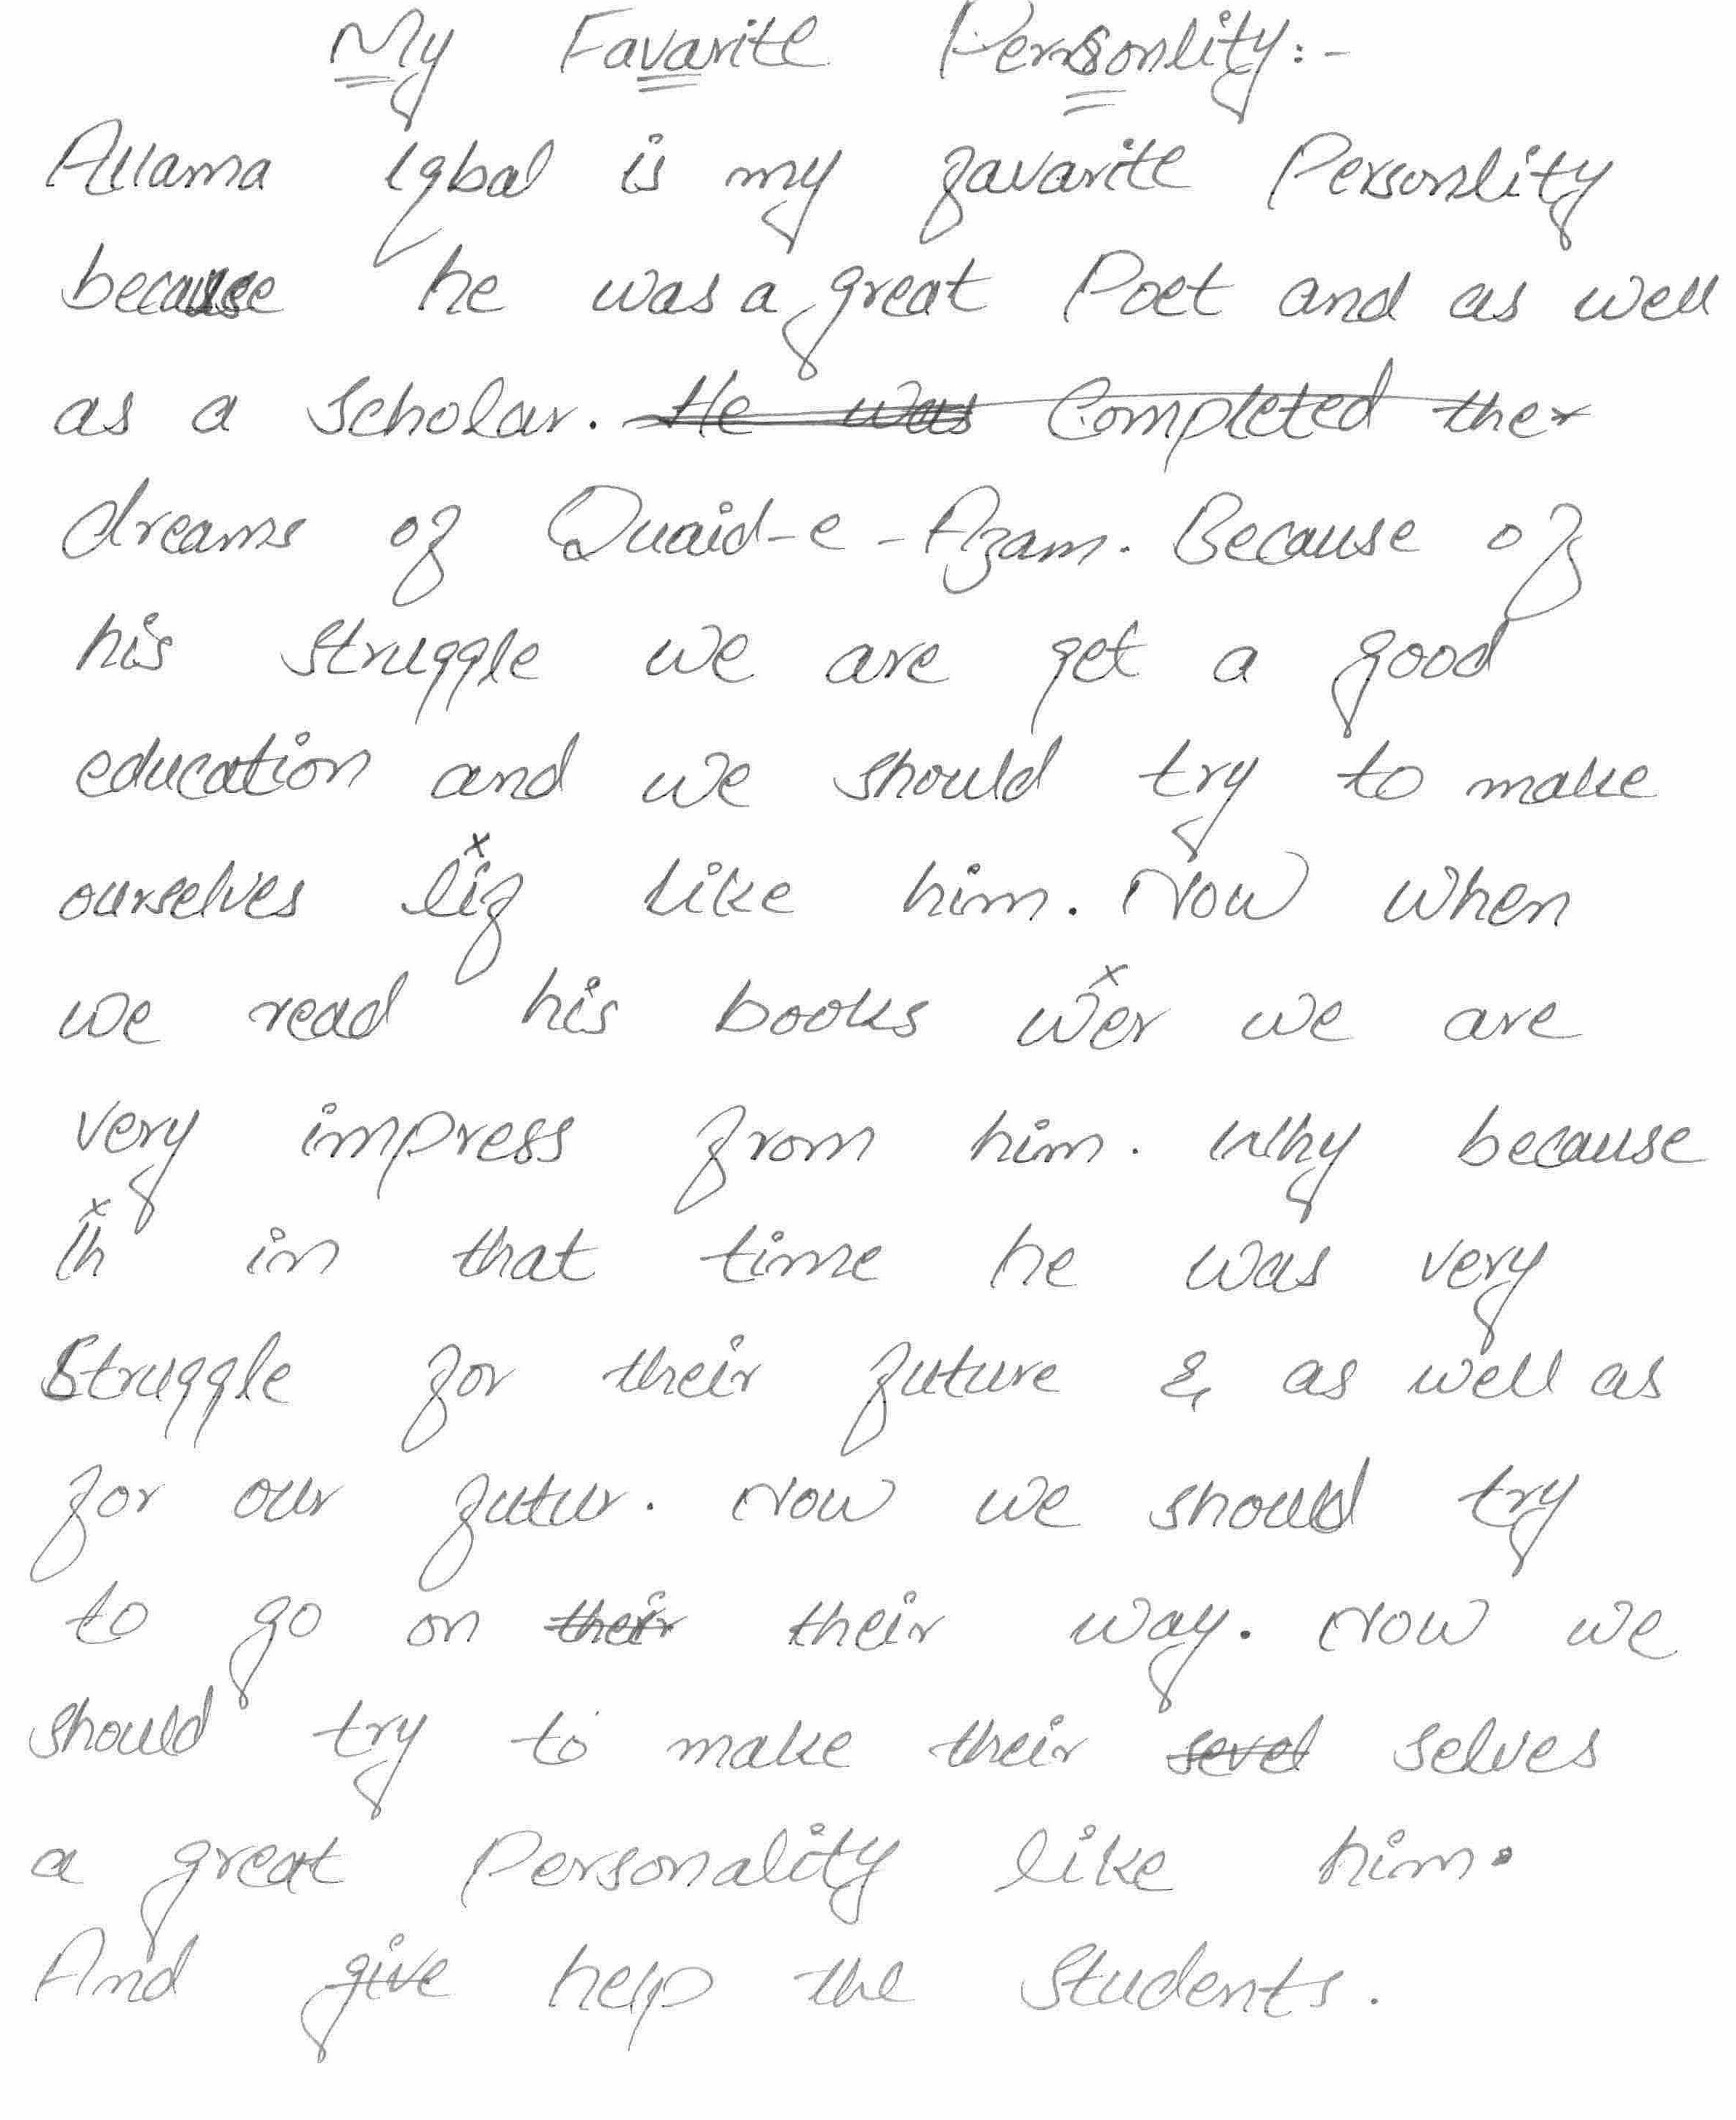 My Favarite Personlity:-
Allama Iqbal is my favarite Personlity
because he was a great Poet and as well
as a Scholar. He was Completed the
dreams of Quaid-e-Azam. Because of
his struggle we are get a good
education and we should try to make
ourselves lif like him. Now when
we read his books wer we are
very impress from him. Why because
Ih in that time he was very
Struggle for their future & as well as
for our futur. Now we should try
to go on their their way. Now we
should try to make their sevel selves
a great Personality like him.
And give help the Students.